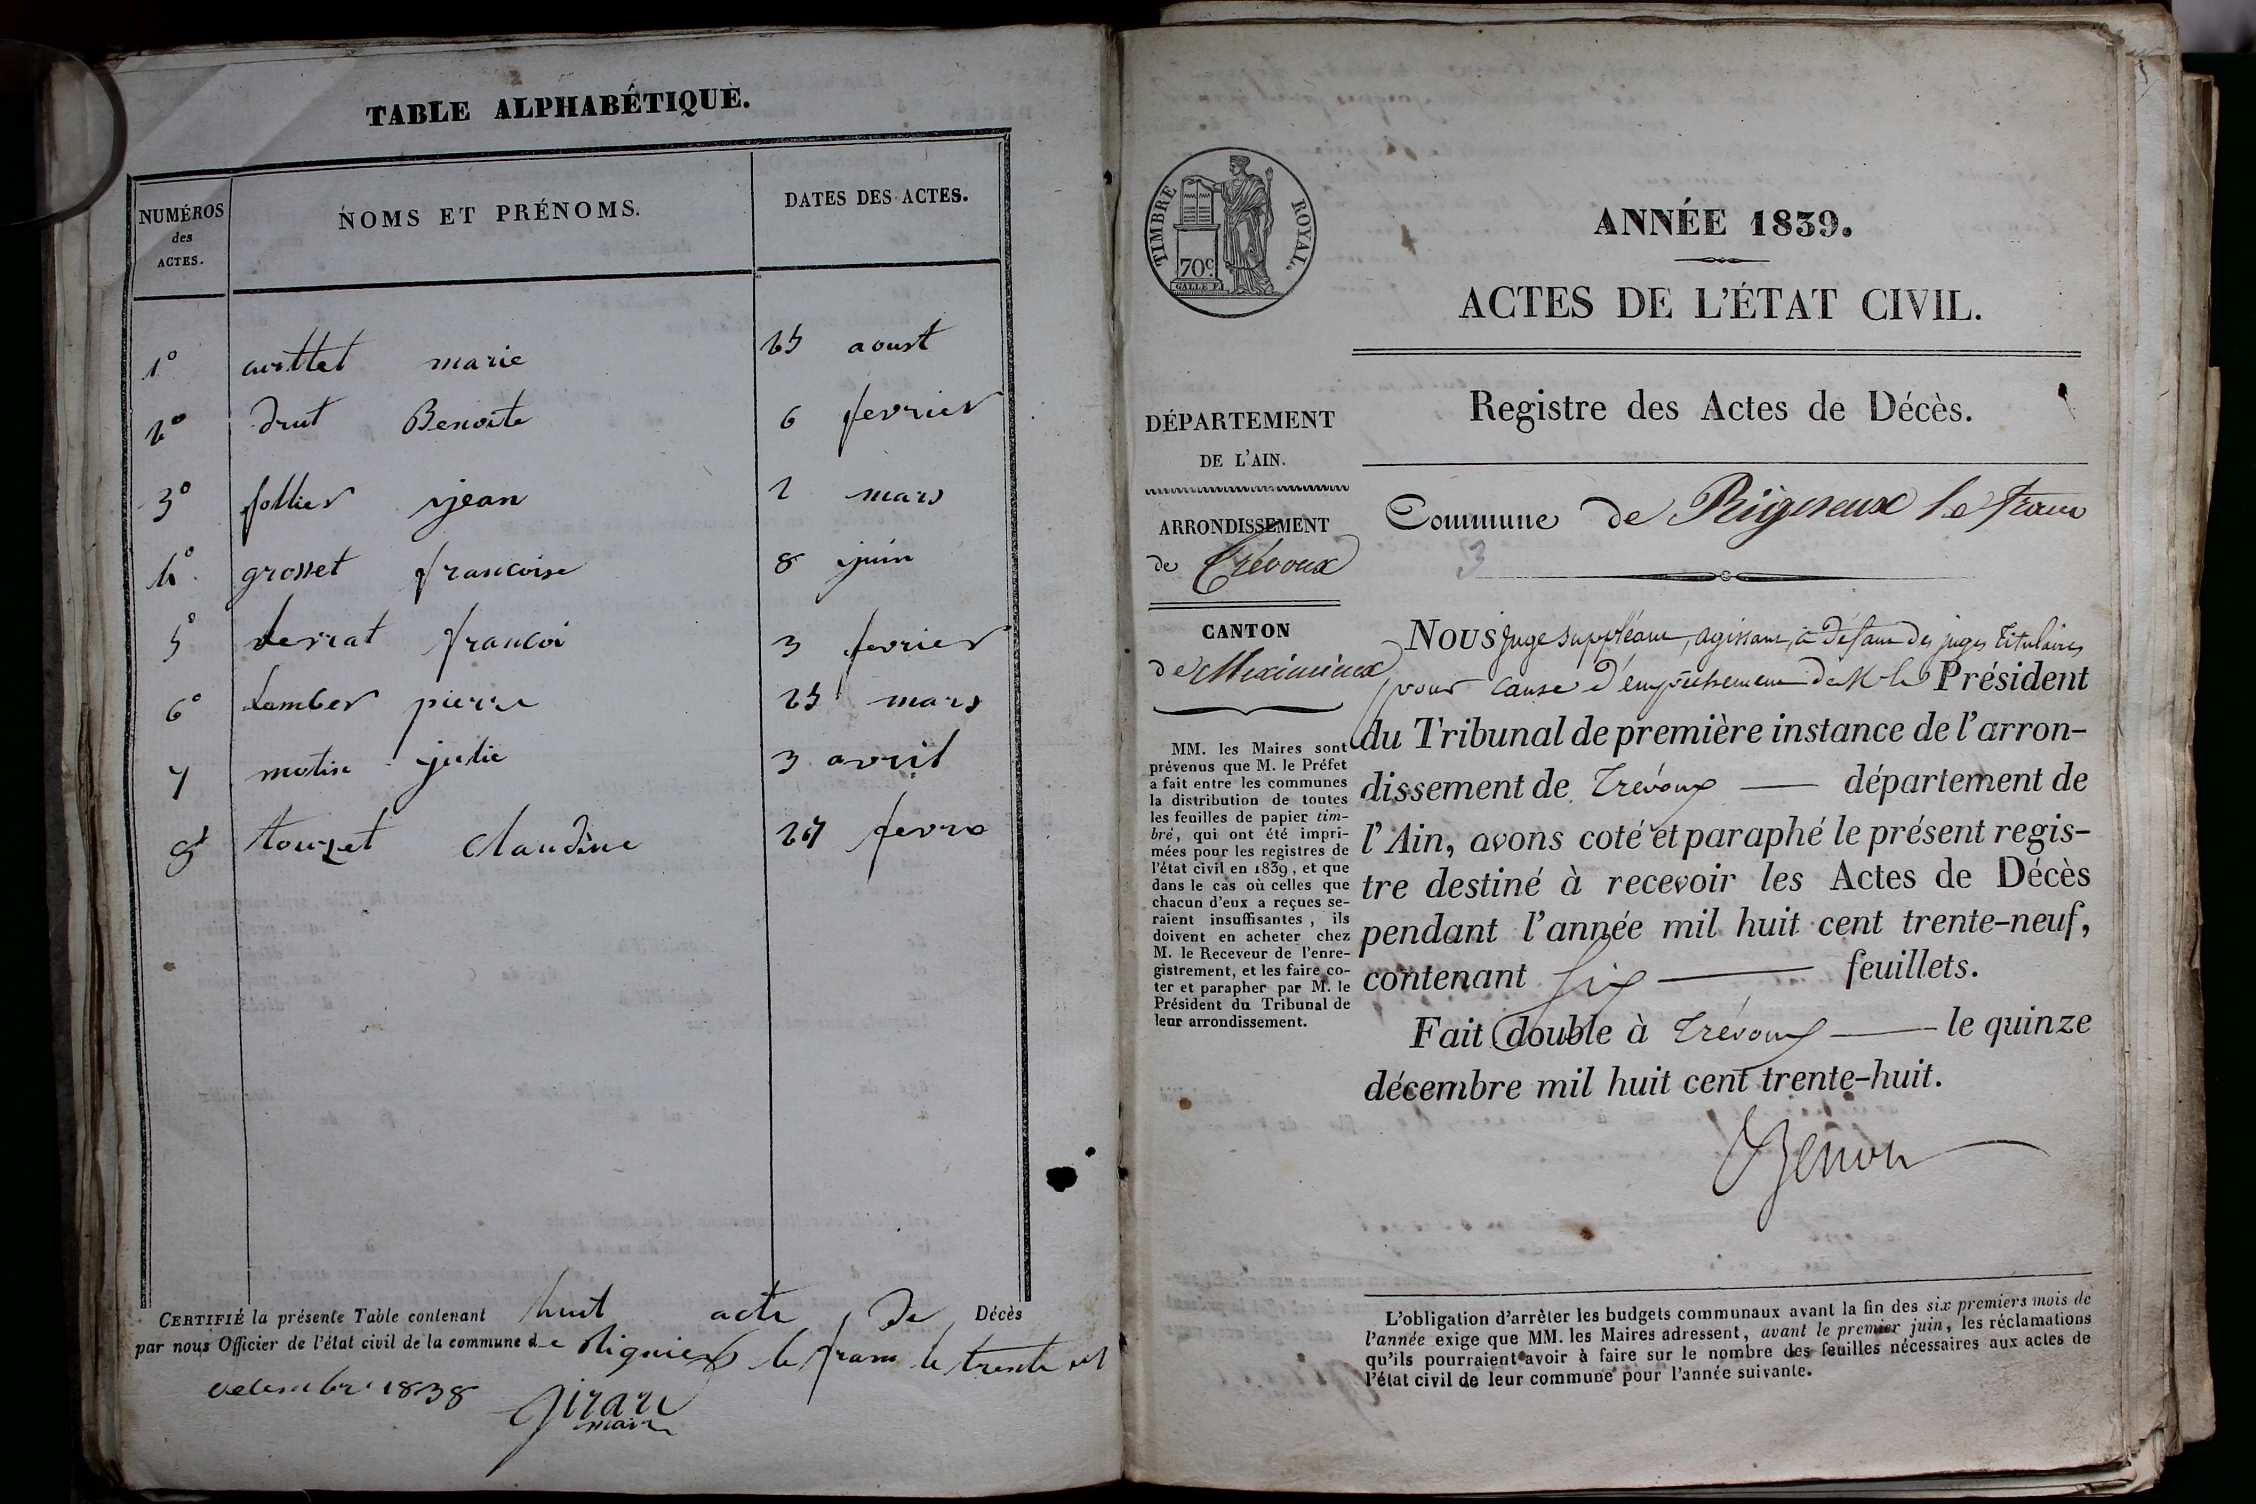 TABLE ALPHABÉTIQUE.
NUMÉROS des ACTES.
NOMS ET PRÉNOMS.
DATES DES ACTES.
1° marie 25 aoust
2° drut Benoite 6 fevrier
3° follier jean 2 mars
4° grosset francoise 8 juin
5° francoi 3 fevrier
6° Lomber pierre 25 mars
7 motin julie 3 avril
8 touzet claudine 27 fevre
CERTIFIÉ la présente Table contenant huit acte de Décès
par nous Officier de l'état civil de la commune de Rignieux le fran le trente et
decembre 1838
Girard
maire
TIMBRE ROYAL.
70c.
GALLE F.
ANNÉE 1839.
ACTES DE L'ÉTAT CIVIL.
Registre des Actes de Décès.
DÉPARTEMENT
DE L'AIN.
ARRONDISSEMENT
de Trévoux
CANTON
de Meximieux
MM. les Maires sont
prévenus que M. le Préfet
a fait entre les communes
la distribution de toutes
les feuilles de papier tim-
bré, qui ont été impri-
mées pour les registres de
l'état civil en 1839, et que
dans le cas où celles que
chacun d'eux a reçues se-
raient insuffisantes, ils
doivent en acheter chez
M. le Receveur de l'enre-
gistrement, et les faire co-
ter et parapher par M. le
Président du Tribunal de
leur arrondissement.
Commune de Rigneux le franc
3
NOUS juge suppléant, agissant à défaut des juges titulaires
pour cause d'empêchement de M. le Président
du Tribunal de première instance de l'arron-
dissement de Trévoux département de
l'Ain, avons coté et paraphé le présent regis-
tre destiné à recevoir les Actes de Décès
pendant l'année mil huit cent trente-neuf,
contenant six feuillets.
Fait double à Trévoux le quinze
décembre mil huit cent trente-huit.
L'obligation d'arrêter les budgets communaux avant la fin des six premiers mois de
l'année exige que MM. les Maires adressent, avant le premier juin, les réclamations
qu'ils pourraient avoir à faire sur le nombre des feuilles nécessaires aux actes de
l'état civil de leur commune pour l'année suivante.